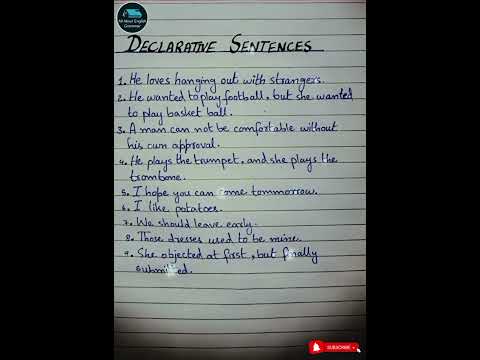 All About English Grammar
DECLARATIVE SENTENCES
1. He loves hanging out with strangers.
2. He wanted to play football, but she wanted
to play basket ball.
3. A man can not be comfortable without
his own approval.
4. He plays the trumpet, and she plays the
trombone.
5. I hope you can come tommorrow.
6. I like potatoes.
7. We should leave early.
8. Those dresses used to be mine.
9. She objected at first, but finally
submitted.
SUBSCRIBE